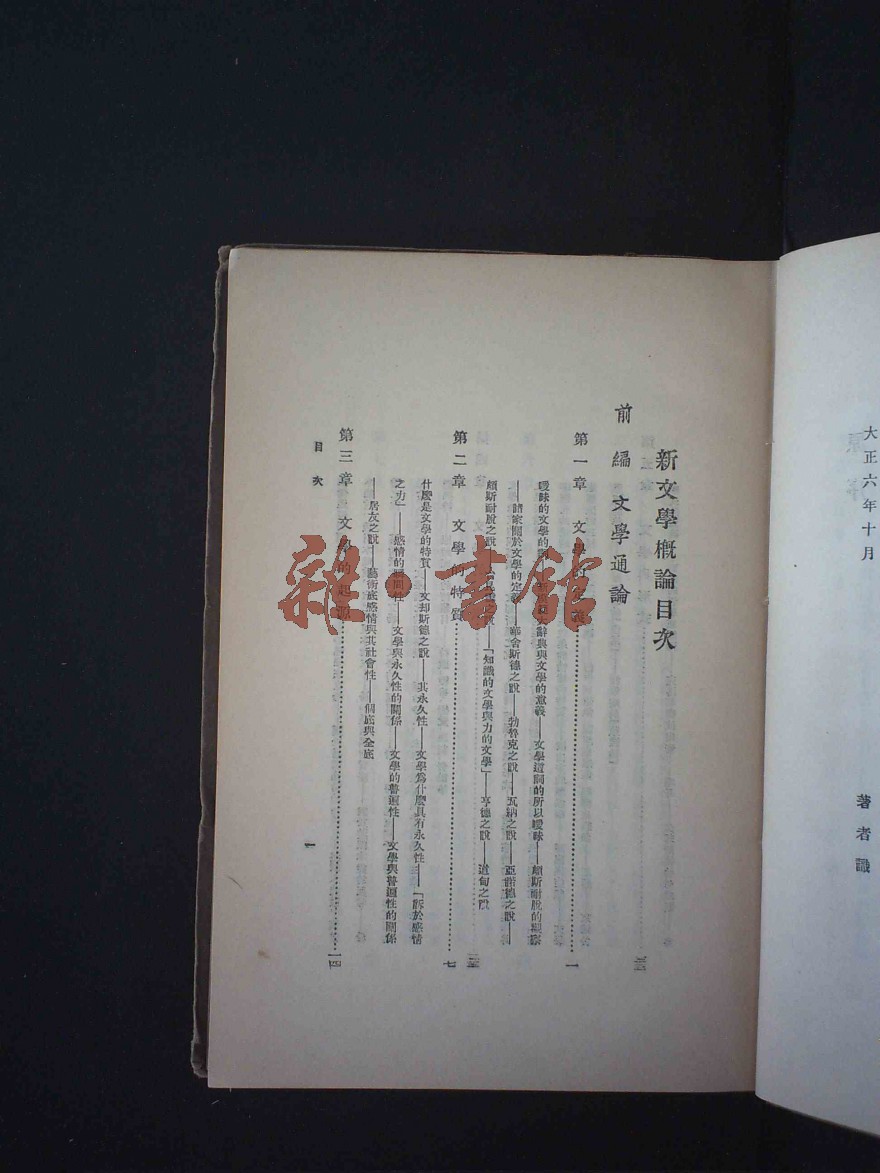 大正六年十月
著者識
新文學概論目次
前編 文學通論
第一章 文學的定義 一
曖昧的文學的 大辭典與文學的意義——文學這詞的所以曖昧——頗斯耐脫的觀察
——諸家關於文學的定義——華舍斯德之說——勃魯克之說——瓦納之說——亞諾德之說——
頗斯耐脫之說 「知識的文學與力的文學」——亨德之說——道旬之說
第二章 文學的特質 七
什麼是文學的特質——文却斯德之說——其永久性——文學爲什麼具有永久性——「訴於感情
之力」——感情的 性——文學與永久性的關係——文學的普遍性——文學與普遍性的關係
——居友之說——藝術底感情與其社會性——個底與全底
第三章 文學的起源 一四
目次
一
雜·書館